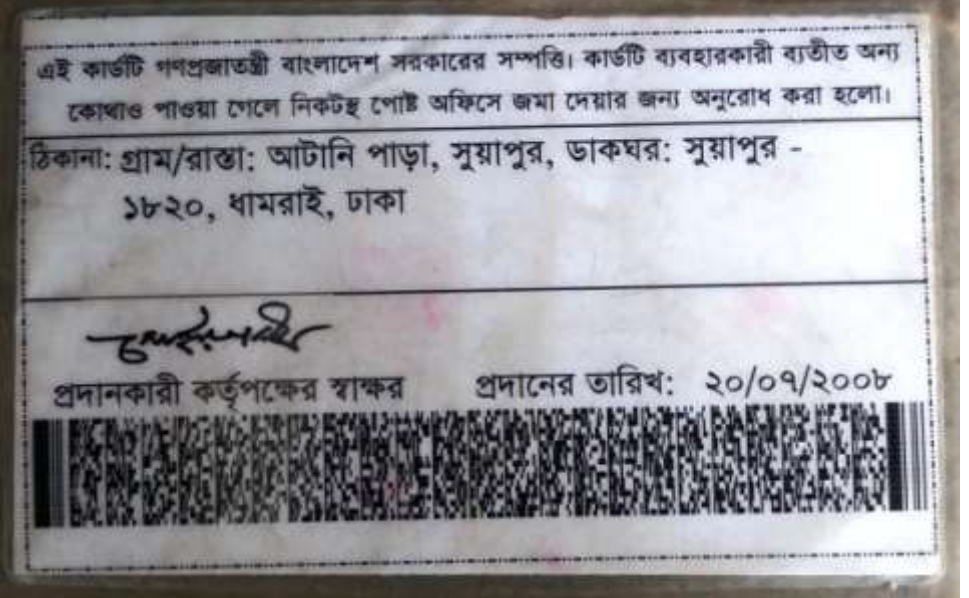 এই কার্ডটি গণপ্রজাতন্ত্রী বাংলাদেশ সরকারের সম্পত্তি। কার্ডটি ব্যবহারকারী ব্যতীত অন্য
কোথাও পাওয়া গেলে নিকটস্থ পোষ্ট অফিসে জমা দেয়ার জন্য অনুরোধ করা হলো।
ঠিকানা: গ্রাম/রাস্তা: আটানি পাড়া, সুয়াপুর, ডাকঘর: সুয়াপুর -
১৮২০, ধামরাই, ঢাকা
প্রদানকারী কর্তৃপক্ষের স্বাক্ষর প্রদানের তারিখ: ২০/০৭/২০০৮